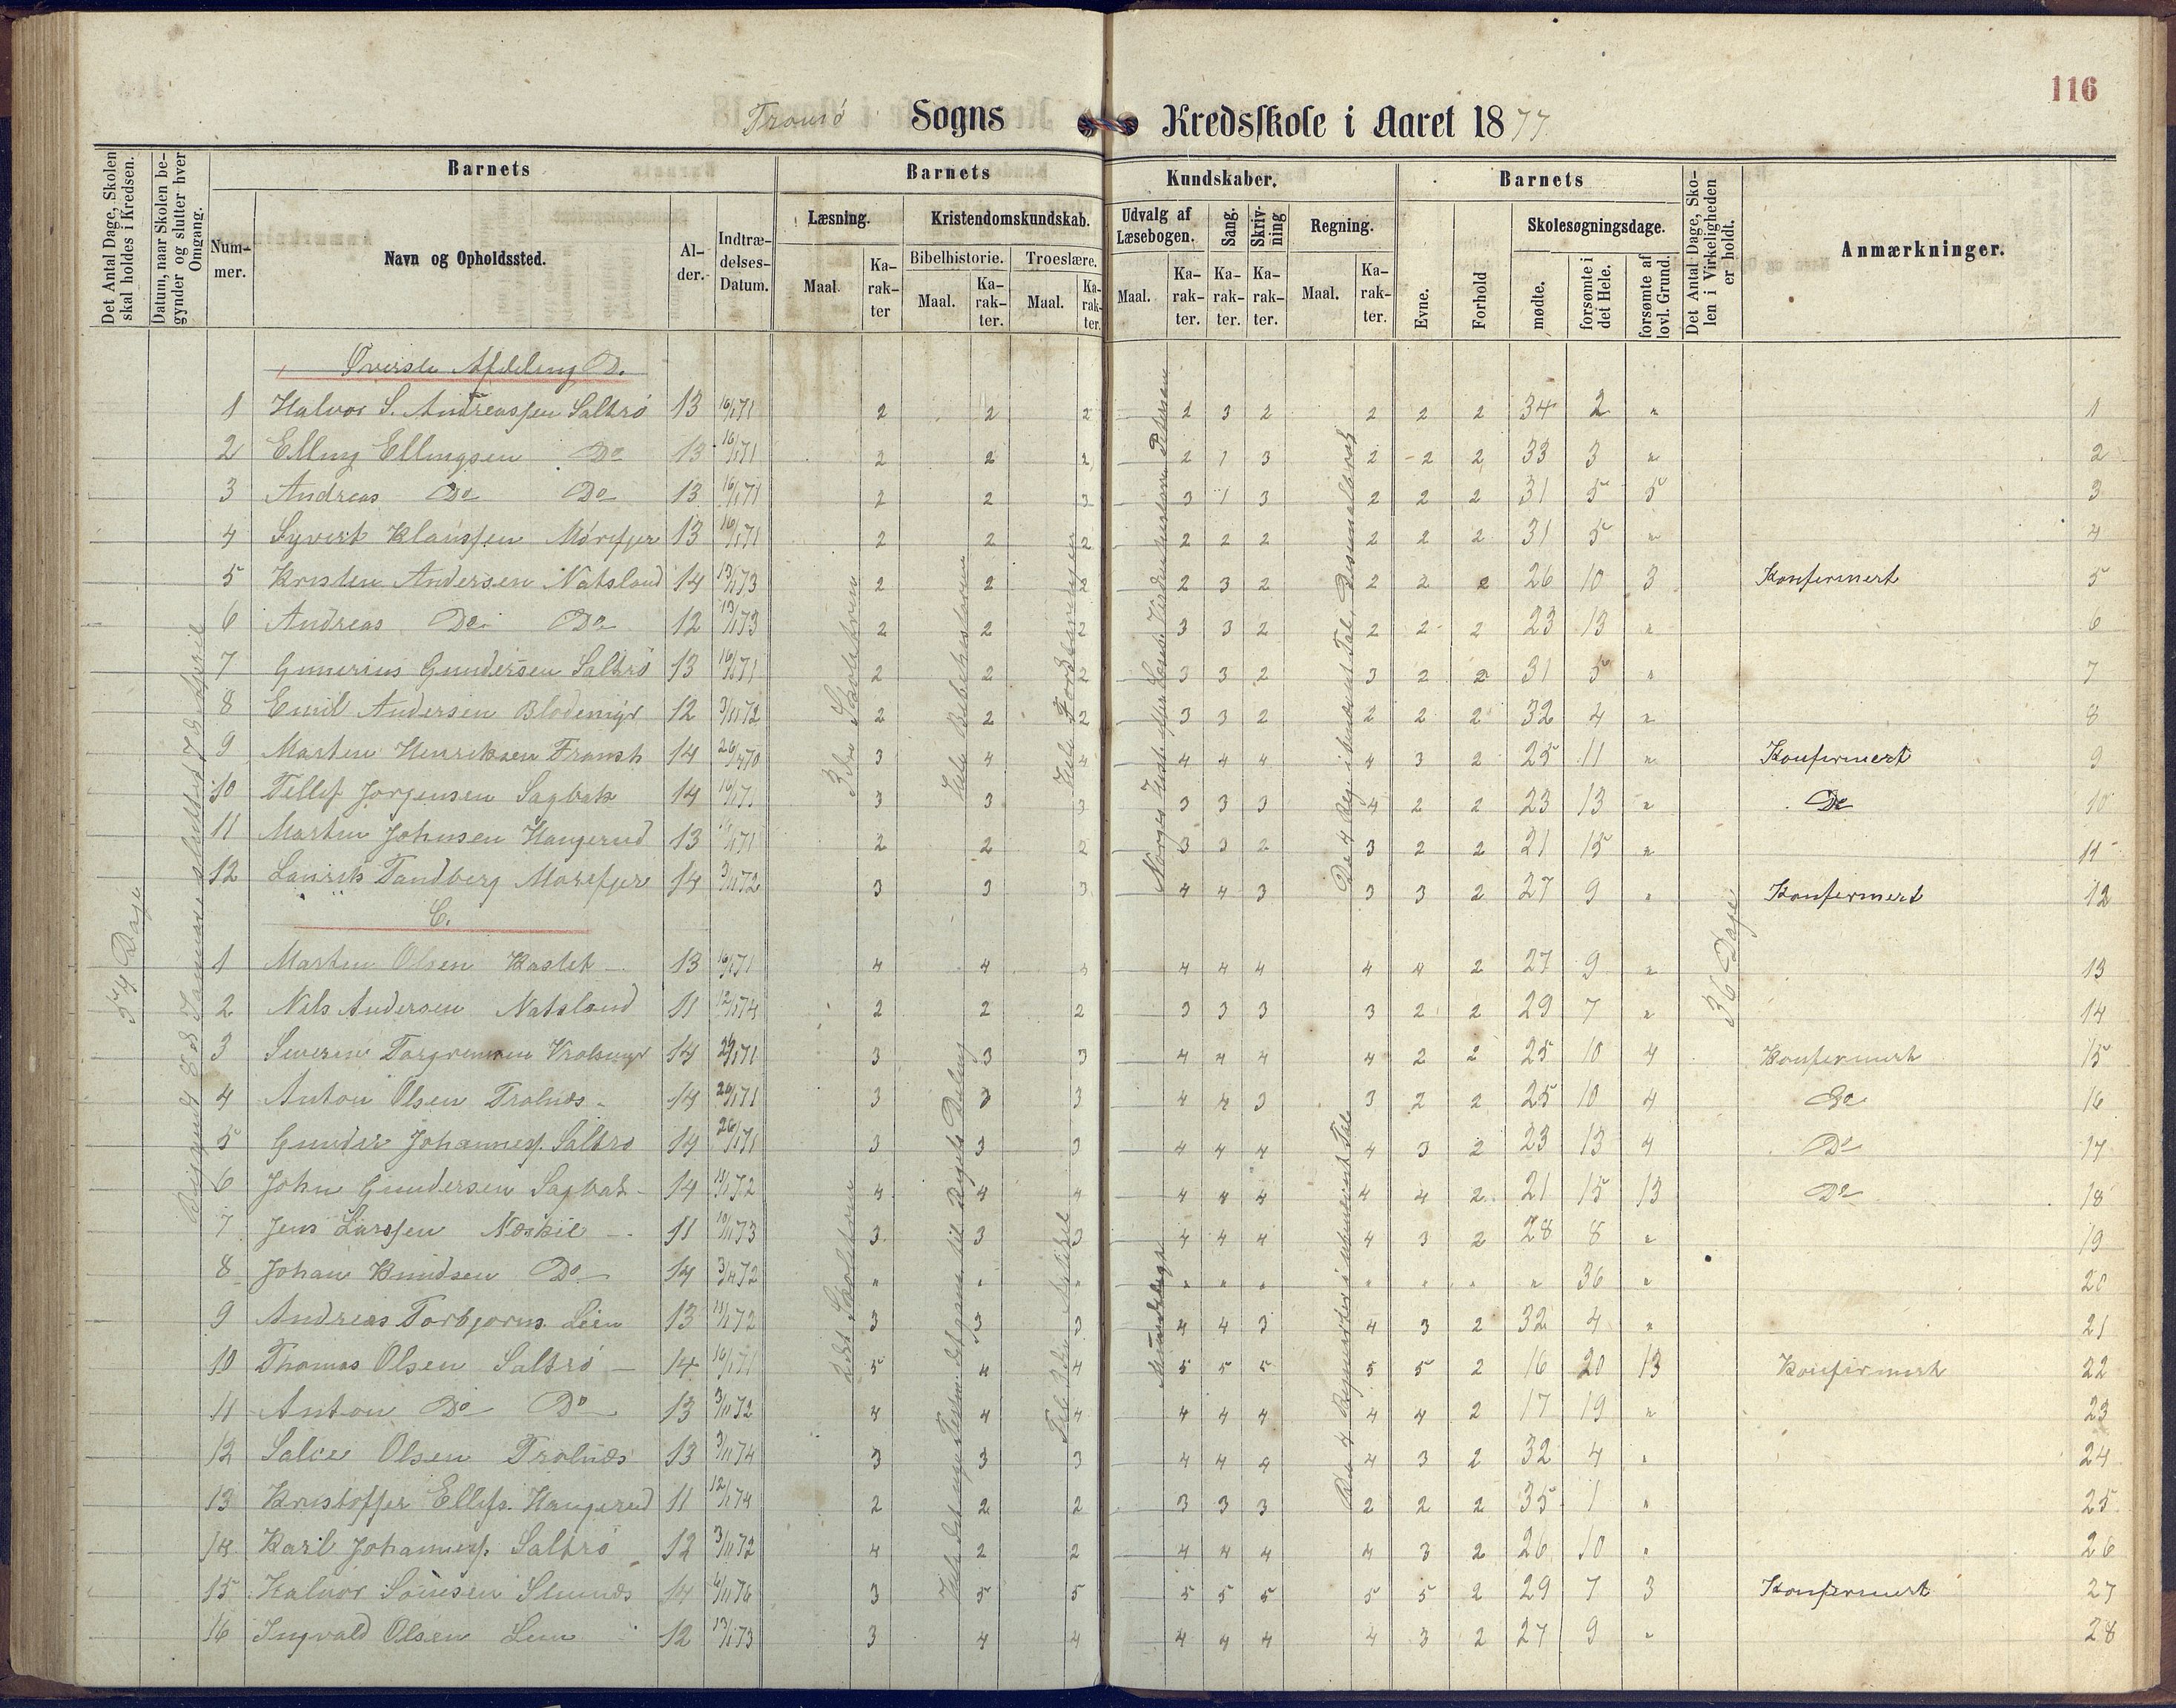 116
Tromö Sogns Kredsskole i Aaret 1877
Det Antal Dage, Skolen skal holdes i Kredsen.
Datum, naar Skolen begynder og slutter hver Omgang.
Barnets
Barnets
Kundskaber.
Barnets
Det Antal Dage, Skolen i Virkeligheden er holdt.
Anmærkninger.
Nummer.
Navn og Opholdssted.
Alder.
Indtrædelses-Datum.
Læsning.
Kristendomskundskab.
Udvalg af Læsebogen.
Sang.
Skrivning
Regning.
Evne.
Forhold
Skolesøgningsdage.
Bibelhistorie.
Troeslære.
Maal.
Karakter
Maal.
Karakter.
Maal.
Karakter.
Maal.
Karakter.
Karakter.
Karakter.
Maal.
Karakter.
mødte.
forsømte i det Hele.
forsømte af lovl. Grund.
54 Dage
36 Dage
Øverste Afdeling D.
1 Halvor S. Andreassen Saltrö 13 16/1 71 2 2 2 2 3 2 2 2 2 34 2 " 1
2 Elling Ellingsen Do 13 16/1 71 2 2 2 2 1 3 2 2 2 33 3 " 2
3 Andreas Do Do 13 16/1 71 2 2 3 3 1 3 2 2 2 31 5 5 3
4 Syvert Klaussen Mörefjer 13 16/1 71 2 2 2 2 2 2 2 2 2 31 5 " 4
5 Kristen Andersen Natsland 14 13/1 73 2 2 2 2 3 2 2 2 2 26 10 3 Konfirmert 5
6 Andreas Do Do 12 13/1 73 2 2 2 3 3 2 2 2 2 23 13 " 6
7 Gunerius Gundersen Saltrö 13 16/1 71 2 2 2 3 3 2 3 2 2 31 5 " 7
8 Emil Andersen Blodemyr 12 3/11 72 2 2 2 3 3 2 2 2 2 32 4 " 8
9 Marten Henriksen 14 3 4 4 4 4 4 4 3 2 25 11 " Konfirmert 9
10 Tellef Jorgensen Sagbak 14 16/1 71 3 3 3 3 3 3 4 2 2 23 13 " Do 10
11 Martin Johnsen Haugerud 13 2 2 2 3 3 2 3 2 2 21 15 " 11
12 Laurits Tandberg Morefjer 14 3/11 72 3 3 3 4 4 3 3 3 2 27 9 " Konfirmert 12
C.
1 Marten Olsen Kastet 13 16/1 71 4 4 4 4 4 4 4 4 2 27 9 " 13
2 Nils Andersen Natsland 11 12/1 74 2 2 2 3 3 3 3 2 2 29 7 " 14
3 Severin 14 3 3 3 4 4 4 4 2 2 25 10 4 Konfirmert 15
4 Anton Olsen Trolnæs 14 26/1 71 3 3 3 4 4 3 3 2 2 25 10 4 Do 16
5 Gunder Johanness. Saltro 14 26/1 71 3 3 3 4 4 4 4 3 2 23 13 4 Do 17
6 John Gundersen Sagbak 14 4 4 4 4 4 4 4 4 2 21 15 13 Do 18
7 Jens Larssen Næskil 11 3 3 3 4 4 4 4 3 2 28 8 " 19
8 Johan Knudsen Do 14 3/11 72 " " " " " " " " " 36 " 20
9 Andreas Torbjorns. Lien 13 3 3 3 4 4 3 4 3 2 32 4 " 21
10 Thomas Olsen Saltrö 14 16/1 71 5 4 4 5 5 5 5 5 2 16 20 13 Konfirmert 22
11 Anton Do Do 13 3/11 72 4 4 4 4 4 4 4 4 2 17 19 " 23
12 Salve Olsen Trolnæs 13 3/11 74 3 3 3 4 4 4 4 3 2 32 4 " 24
13 Kristoffer Ellefs. Haugerud 11 12/1 74 2 2 2 3 3 3 2 2 2 35 1 " 25
14 Karl Johanness. Saltrö 12 3/11 72 4 2 2 4 4 4 4 3 2 26 10 " 26
15 Halvor 14 3 5 5 5 5 5 5 5 2 29 7 3 Konfirmert 27
16 Ingvald Olsen Lien 12 13/1 73 3 4 4 4 4 4 4 3 2 27 9 " 28